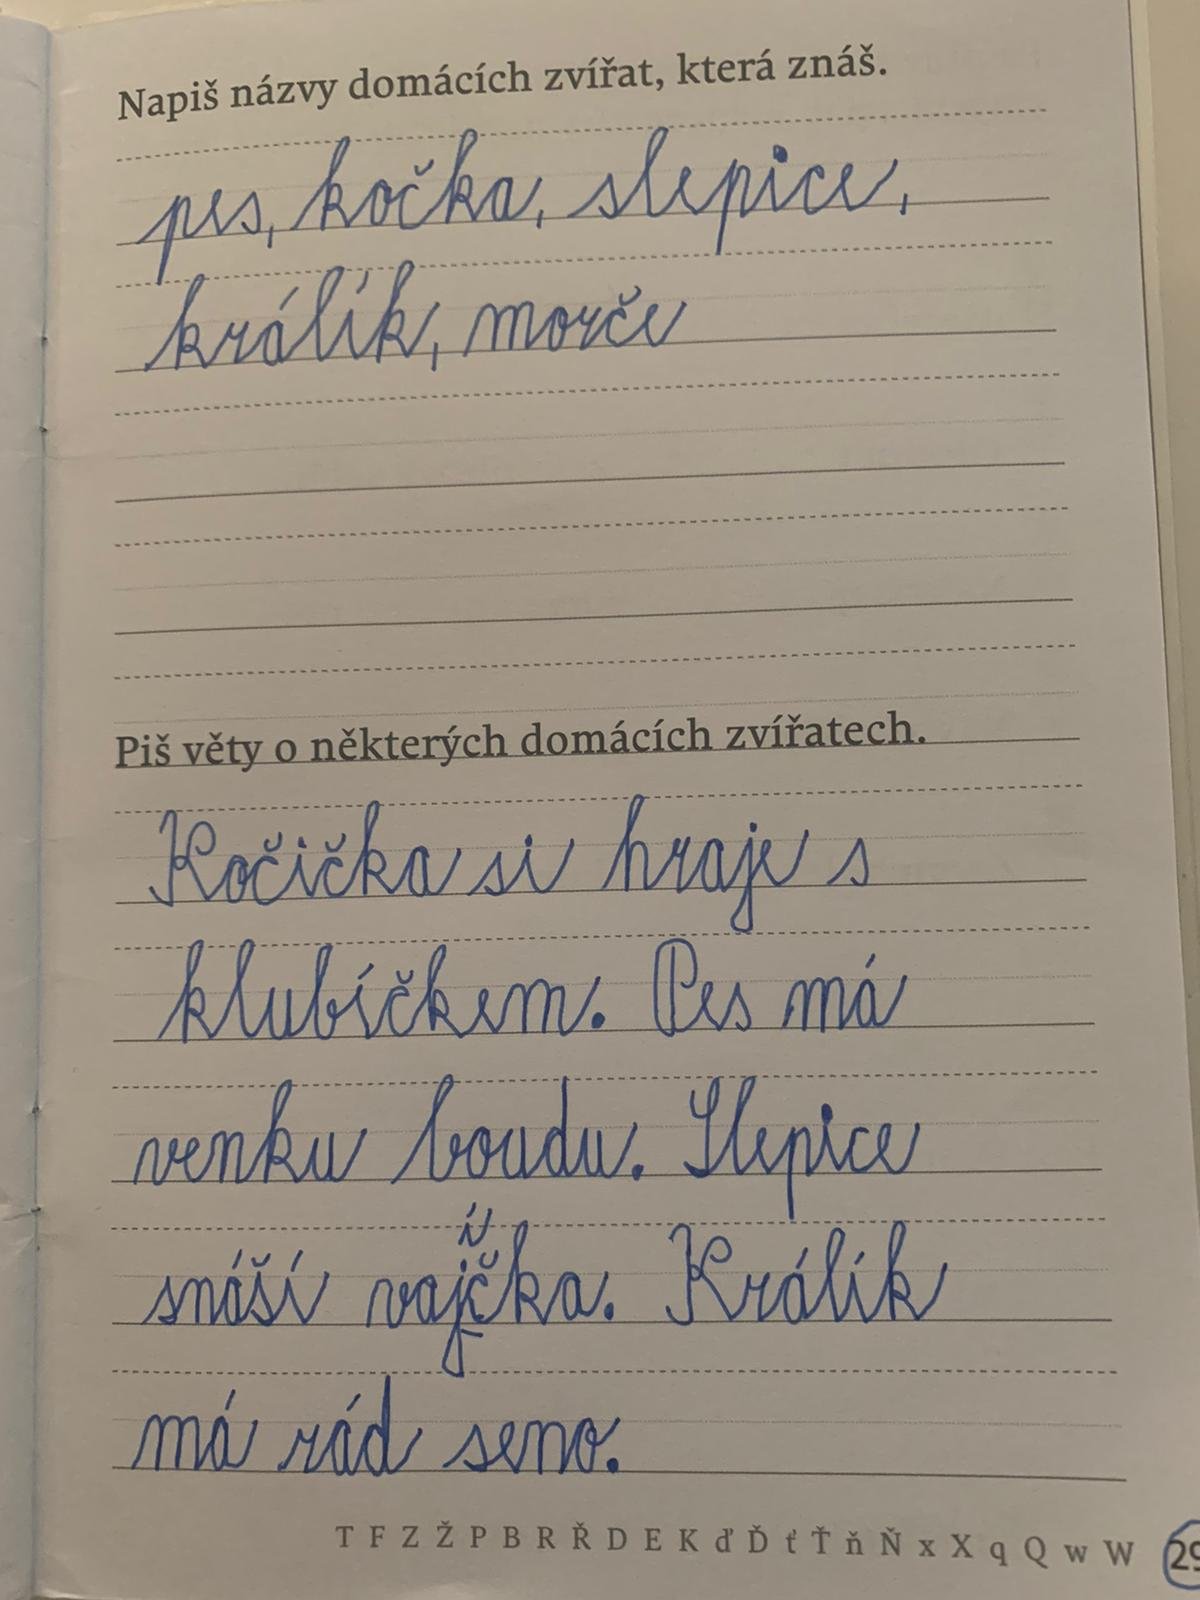 Napiš názvy domácích zvířat, která znáš.
pes, kočka, slepice,
králík, morče
Piš věty o některých domácích zvířatech.
Kočička si hraje s
klubíčkem. Pes má
venku boudu. Slepice
í
snáší vajčka. Králík
má rád seno.
T F Z Ž P B R Ř D E K ď Ď ť Ť ň Ň x X q Q w W 29